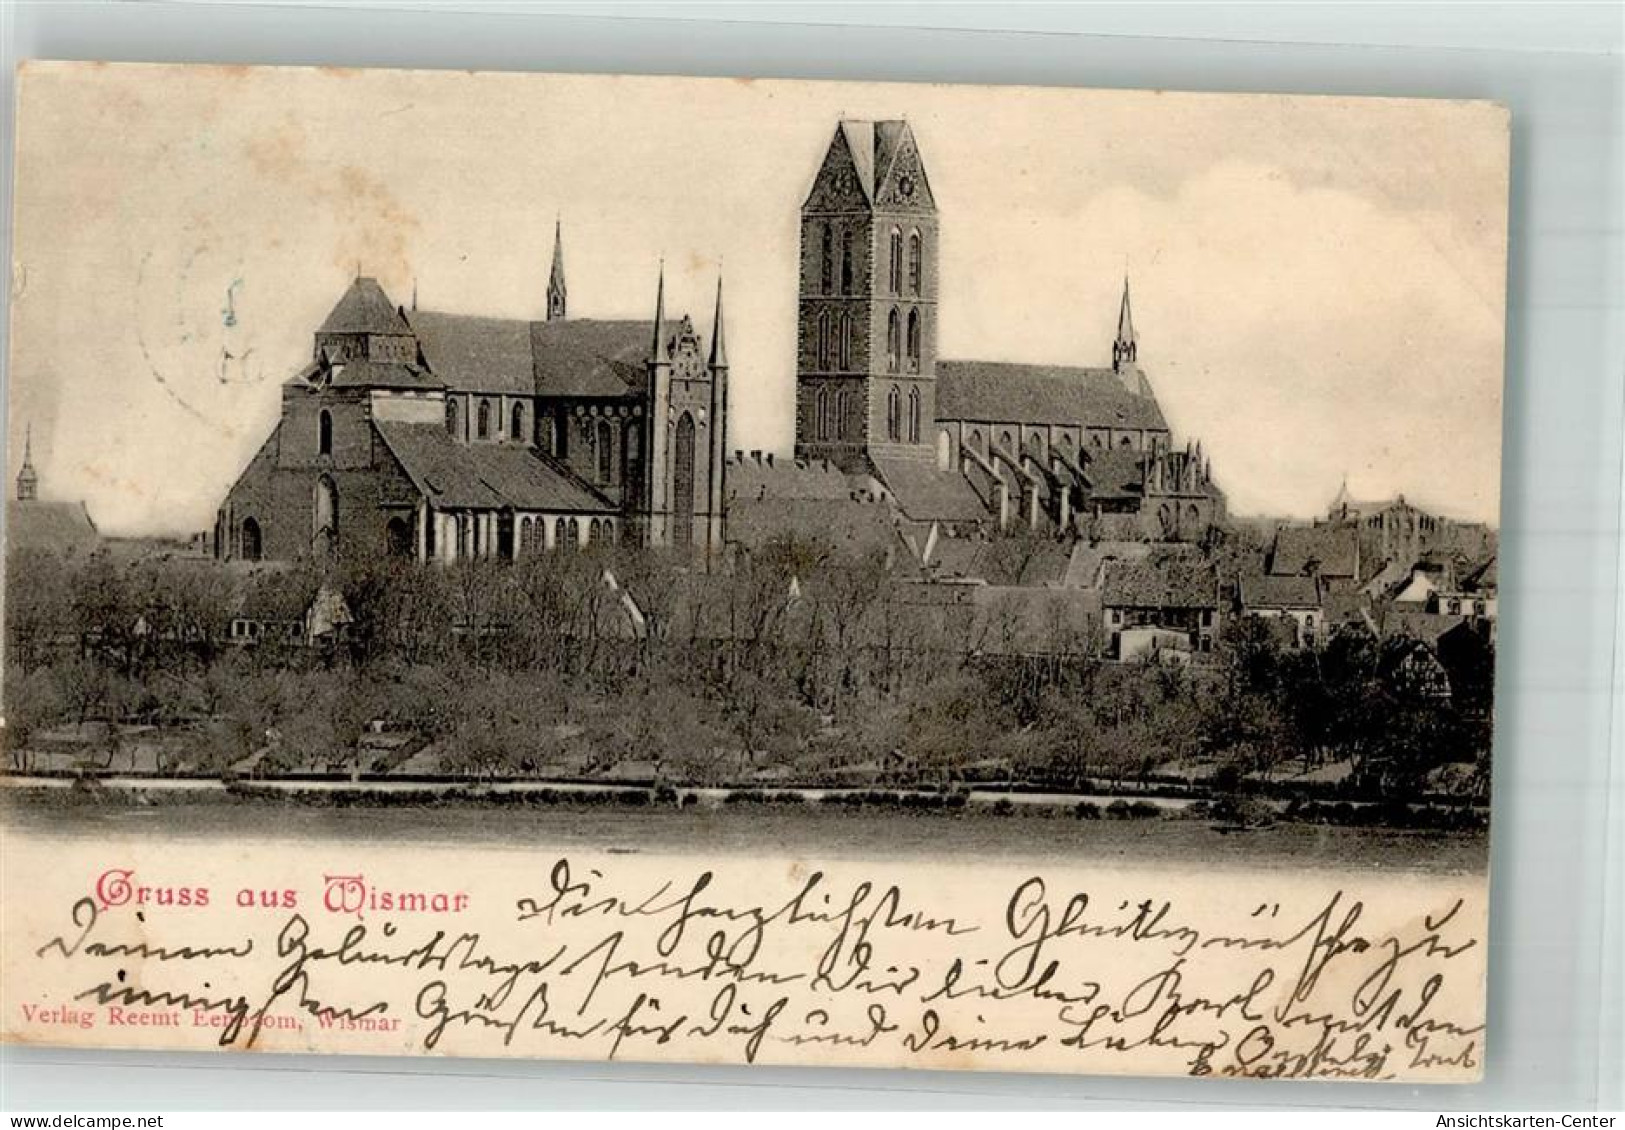 Gruss aus Wismar
Die herzlichsten Glückwünsche zu
Deinem Geburtstage senden Dir lieber Karl mit den
innigsten Grüssen für Dich und Deine Lieben
Verlag Reemt Wismar
Ansichtskarten-Center